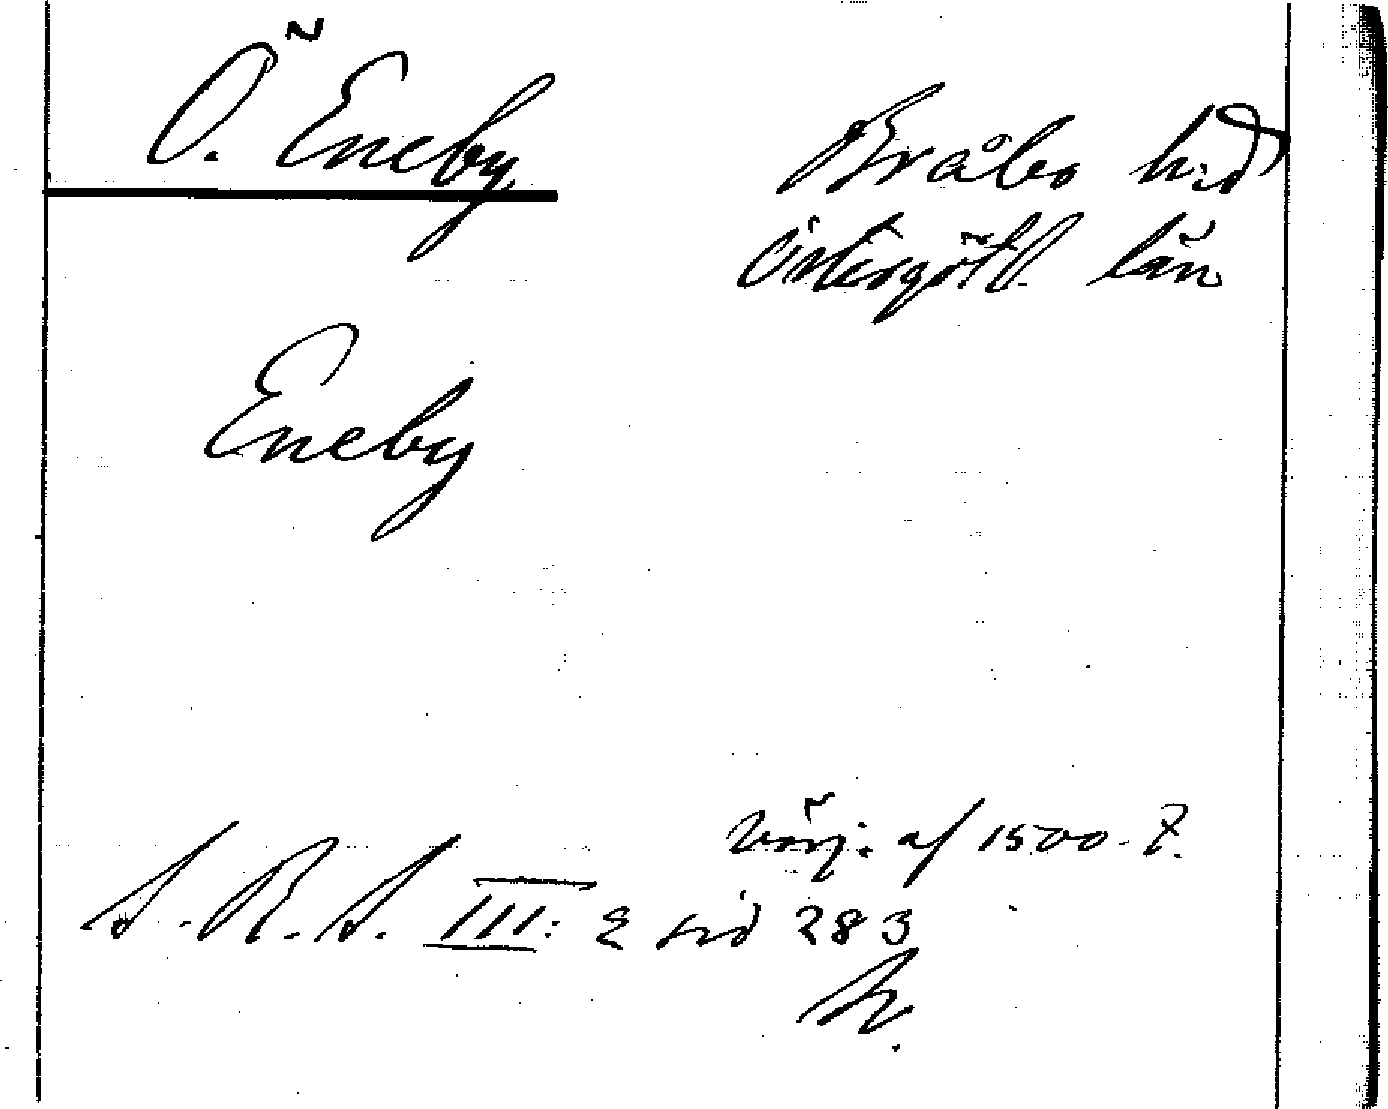 Ö. Eneby
Bråbo h:d
Östergötl. län
Eneby
börj. af 1500-t.
S. R. S. III: 2 sid 283